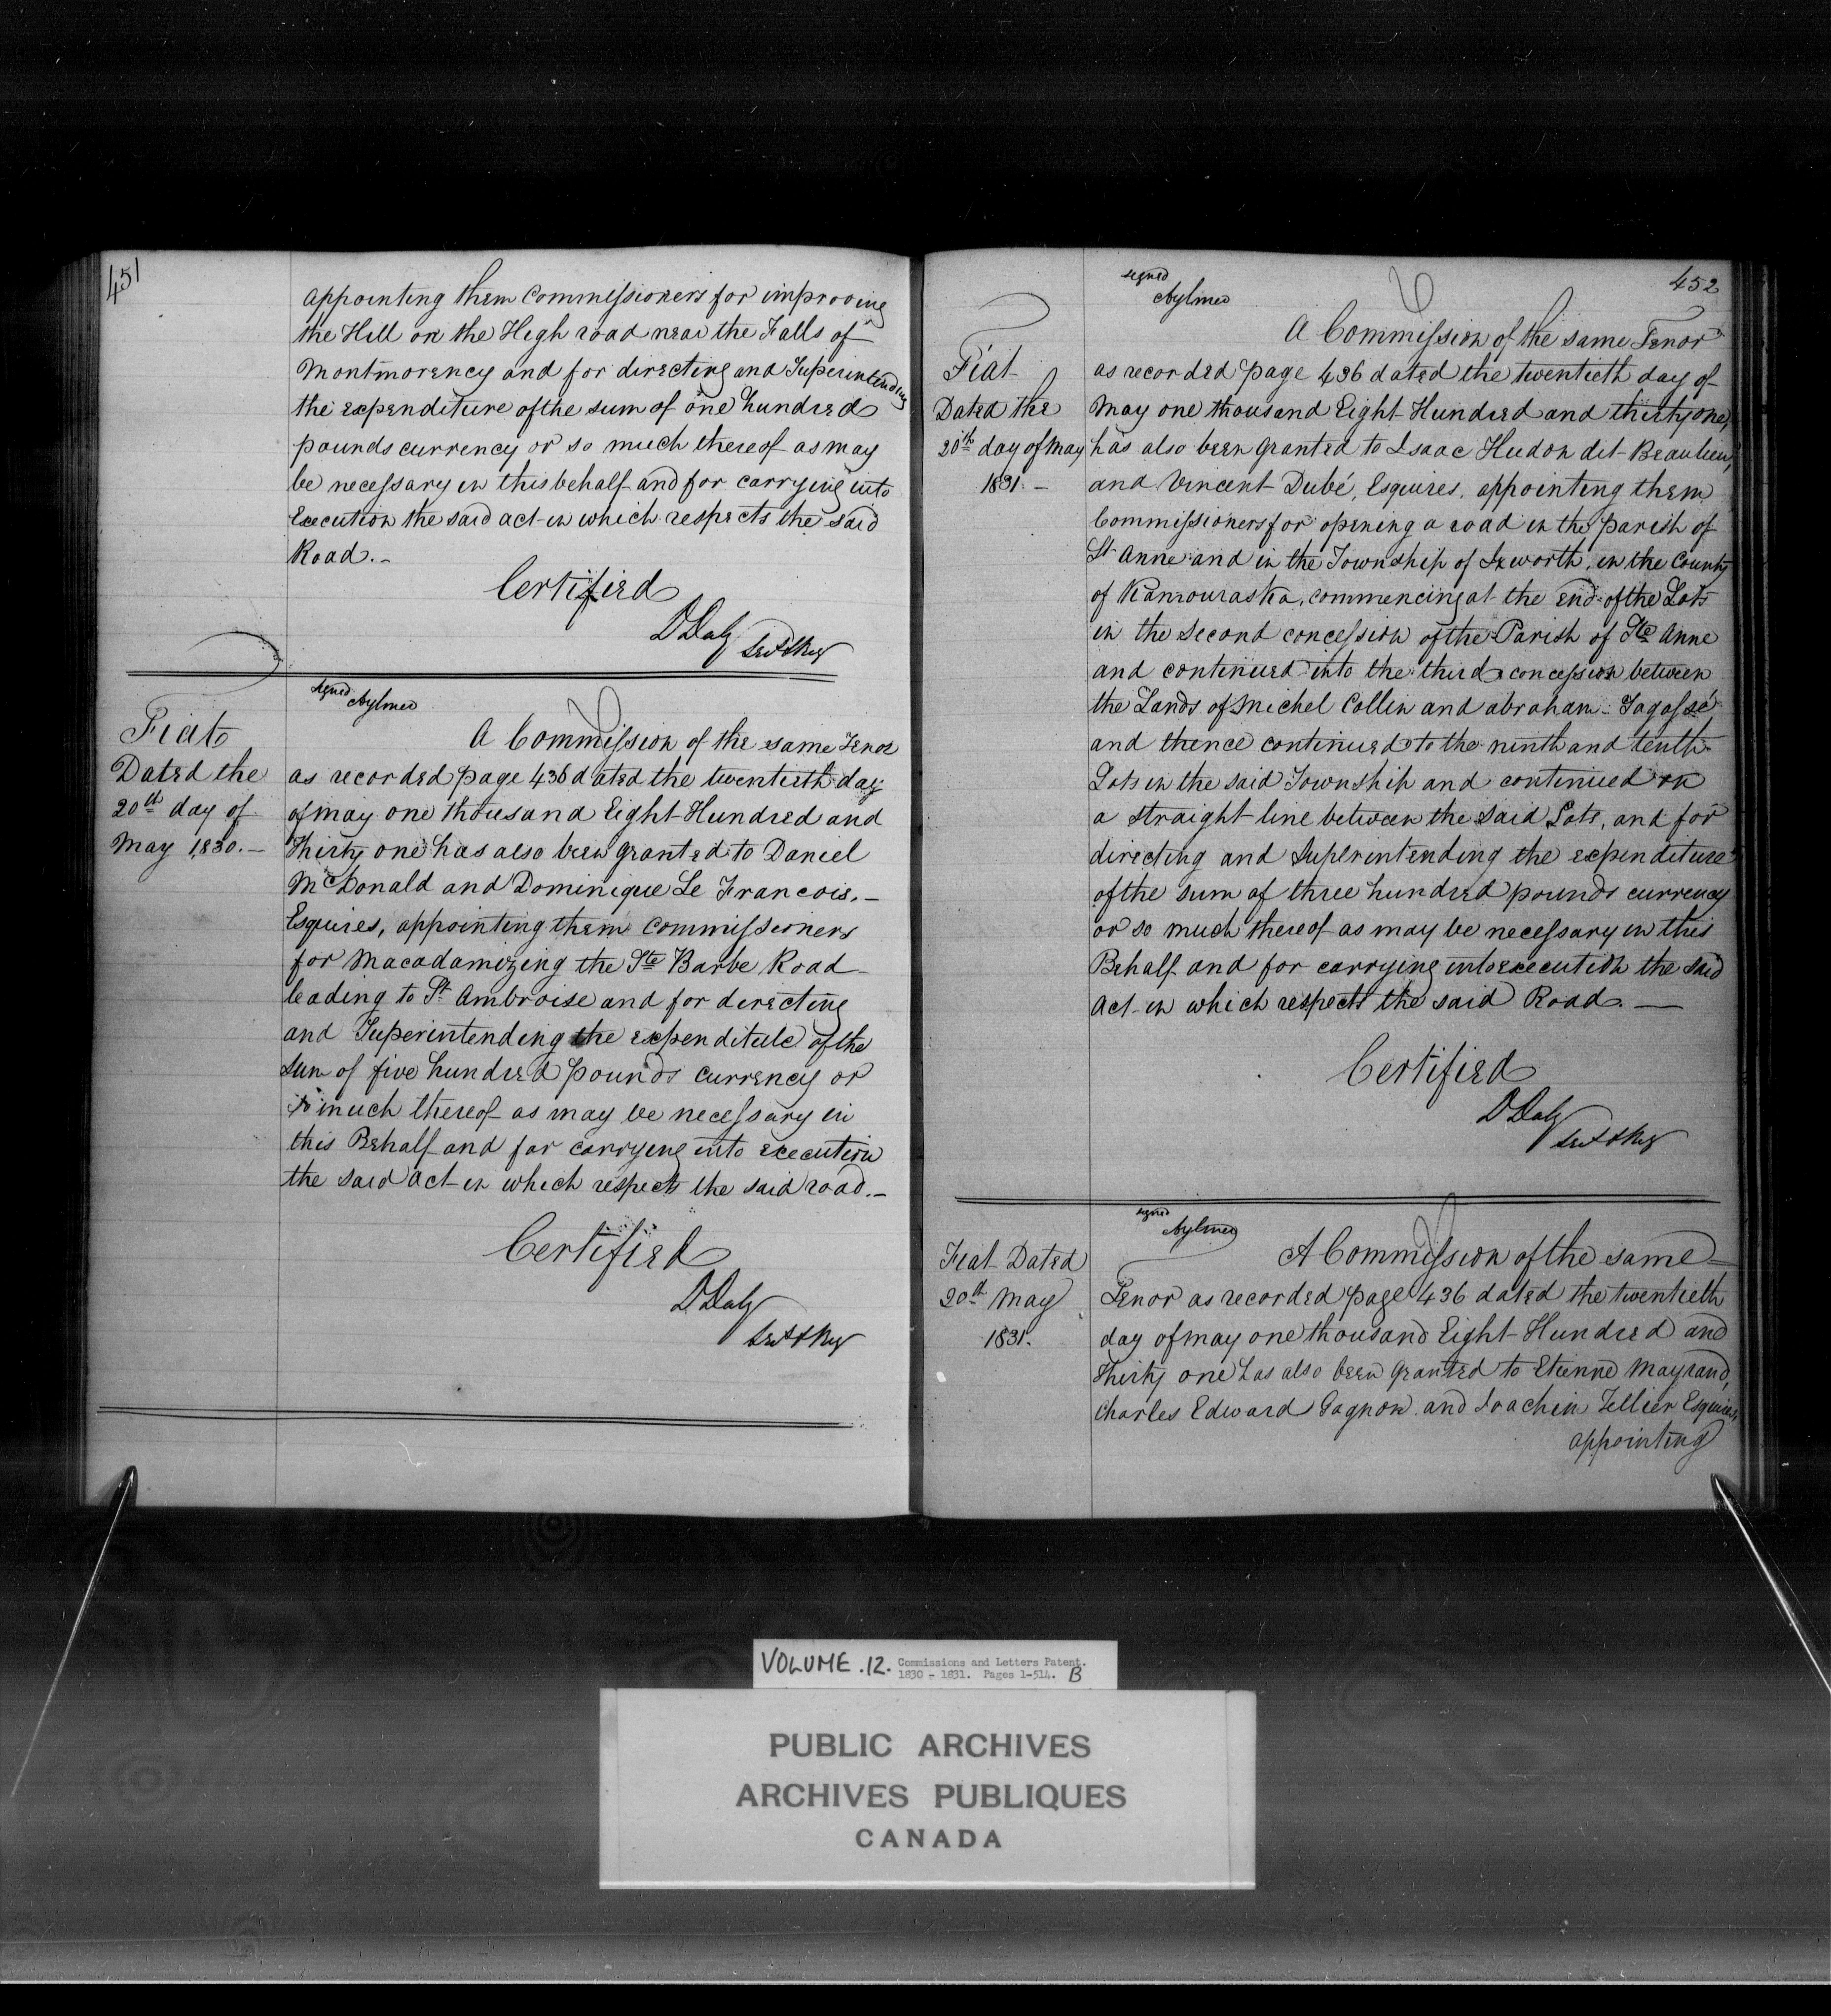 451
appointing them Commissioners for improving
the Hill on the High road near the Falls of
Montmorency and for directing and Superintending
the expenditure of the sum of one hundred
pounds currency or so much thereof as may
be necessary in this behalf and for carrying into
Execution the said act in which respects the said
Road.-
Certified
D Daly
Sec & Reg
signed
Aylmer
Fiat
Dated the
20th day of
May 1830.-
A Commission of the same Tenor
as recorded page 436 dated the twentieth day
of may one thousand Eight Hundred and
Thirty one has also been granted to Daniel
McDonald and Dominique Le Francois.-
Esquires, appointing them Commissioners
for Macadamizing the Ste Barbe Road
leading to St Ambroise and for directing
and Superintending the expenditure of the
Sum of five hundred pounds currency or
so much thereof as may be necessary in
this Behalf and for carrying into execution
the said act in which respects the said road.-
Certified
D Daly
Sec & Reg
452
signed
Aylmer
Fiat
Dated the
20th day of May
1831.-
A Commission of the same Tenor
as recorded page 436 dated the twentieth day of
May one thousand Eight Hundred and thirty one,
has also been granted to Isaac Hudon dit Beaulieu,
and Vincent Dubé, Esquires, appointing them
Commissioners for opening a road in the parish of
St Anne and in the Township of Ixworth, in the County
of Kamouraska, commencing at the end of the Lots
in the Second concession of the Parish of Ste Anne
and continued into the third concession between
the Lands of Michel Collin and abraham Gagossé
and thence continued to the ninth and tenth
Lots in the said Township and continued on
a straight line between the said Lots, and for
directing and Superintending the expenditure
of the sum of three hundred pounds currency
or so much thereof as may be necessary in this
Behalf and for carrying into execution the said
Act in which respects the said Road.-
Certified
D Daly
Sec & Reg
signed
Aylmer
Fiat Dated
20th May
1831.
A Commission of the same
Tenor as recorded page 436 dated the twentieth
day of may one thousand Eight Hundred and
Thirty one has also been granted to Etienne Mayrand,
Charles Edward Gagnon and Joachin Tellier Esquires,
appointing
VOLUME.12. Commissions and Letters Patent.
1830 - 1831. Pages 1-514. B
PUBLIC ARCHIVES
ARCHIVES PUBLIQUES
CANADA